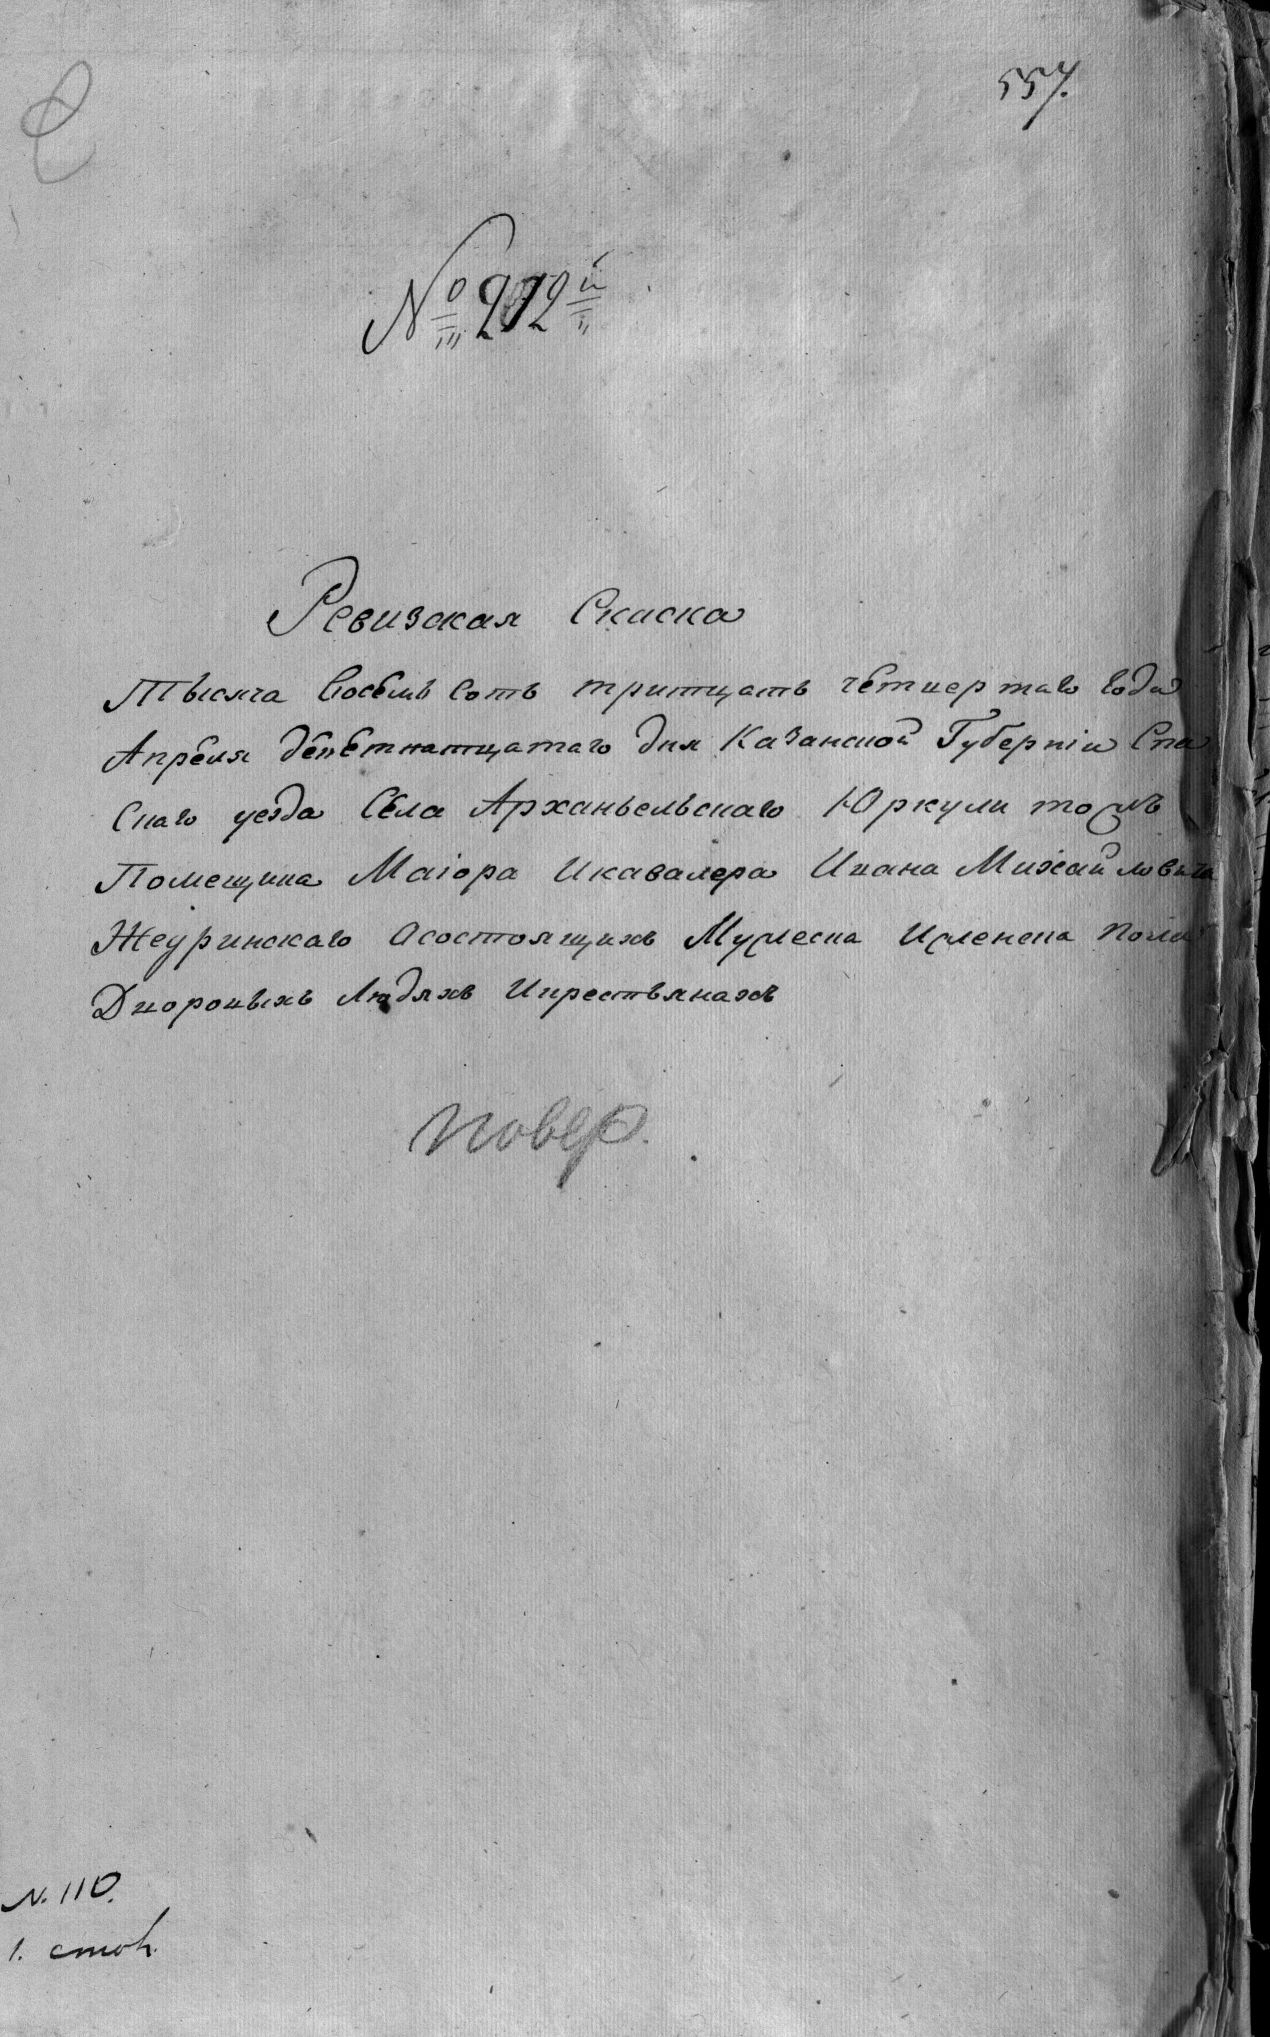 557.
№ 212й
Ревизская Скаска
Тысяча восемь соть тритцать четвертаго года
Апреля деветнатцатаго дня Казанской Губерніи Спа
скаго уезда Села Архангельскаго Юркули тожъ
Помещика Маіора Икавалера Ивана Михайловича
Жедринскаго Осостоящихъ Мужеска Иженска пола
Дворовыхъ Людяхъ Икрестьянахъ
повер.
N. 110.
1.